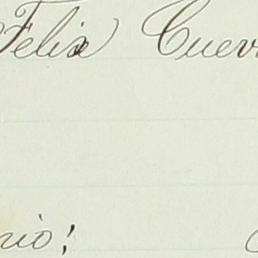 Felix Cuev
nio!